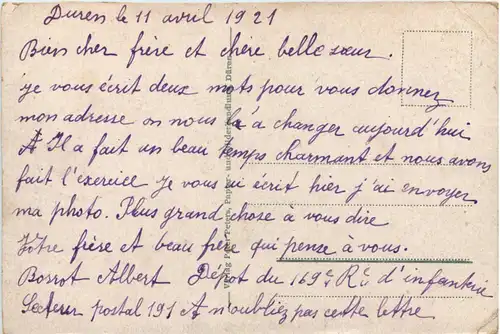 Duren le 11 avril 1921
Bien cher frère et chère belle sœur.
je vous écrit deux mots pour vous donnez
mon adresse on nous la a changer aujourd'hui
A Il a fait un beau temps charmant et nous avons
fait l'exercice je vous ai écrit hier j'ai envoyer
ma photo. Plus grand chose à vous dire
Votre frère et beau frère qui pense à vous.
Bossot Albert Dépot du 169e Rt d'infanterie
Secteur postal 191 A n'oubliez pas cette lettre